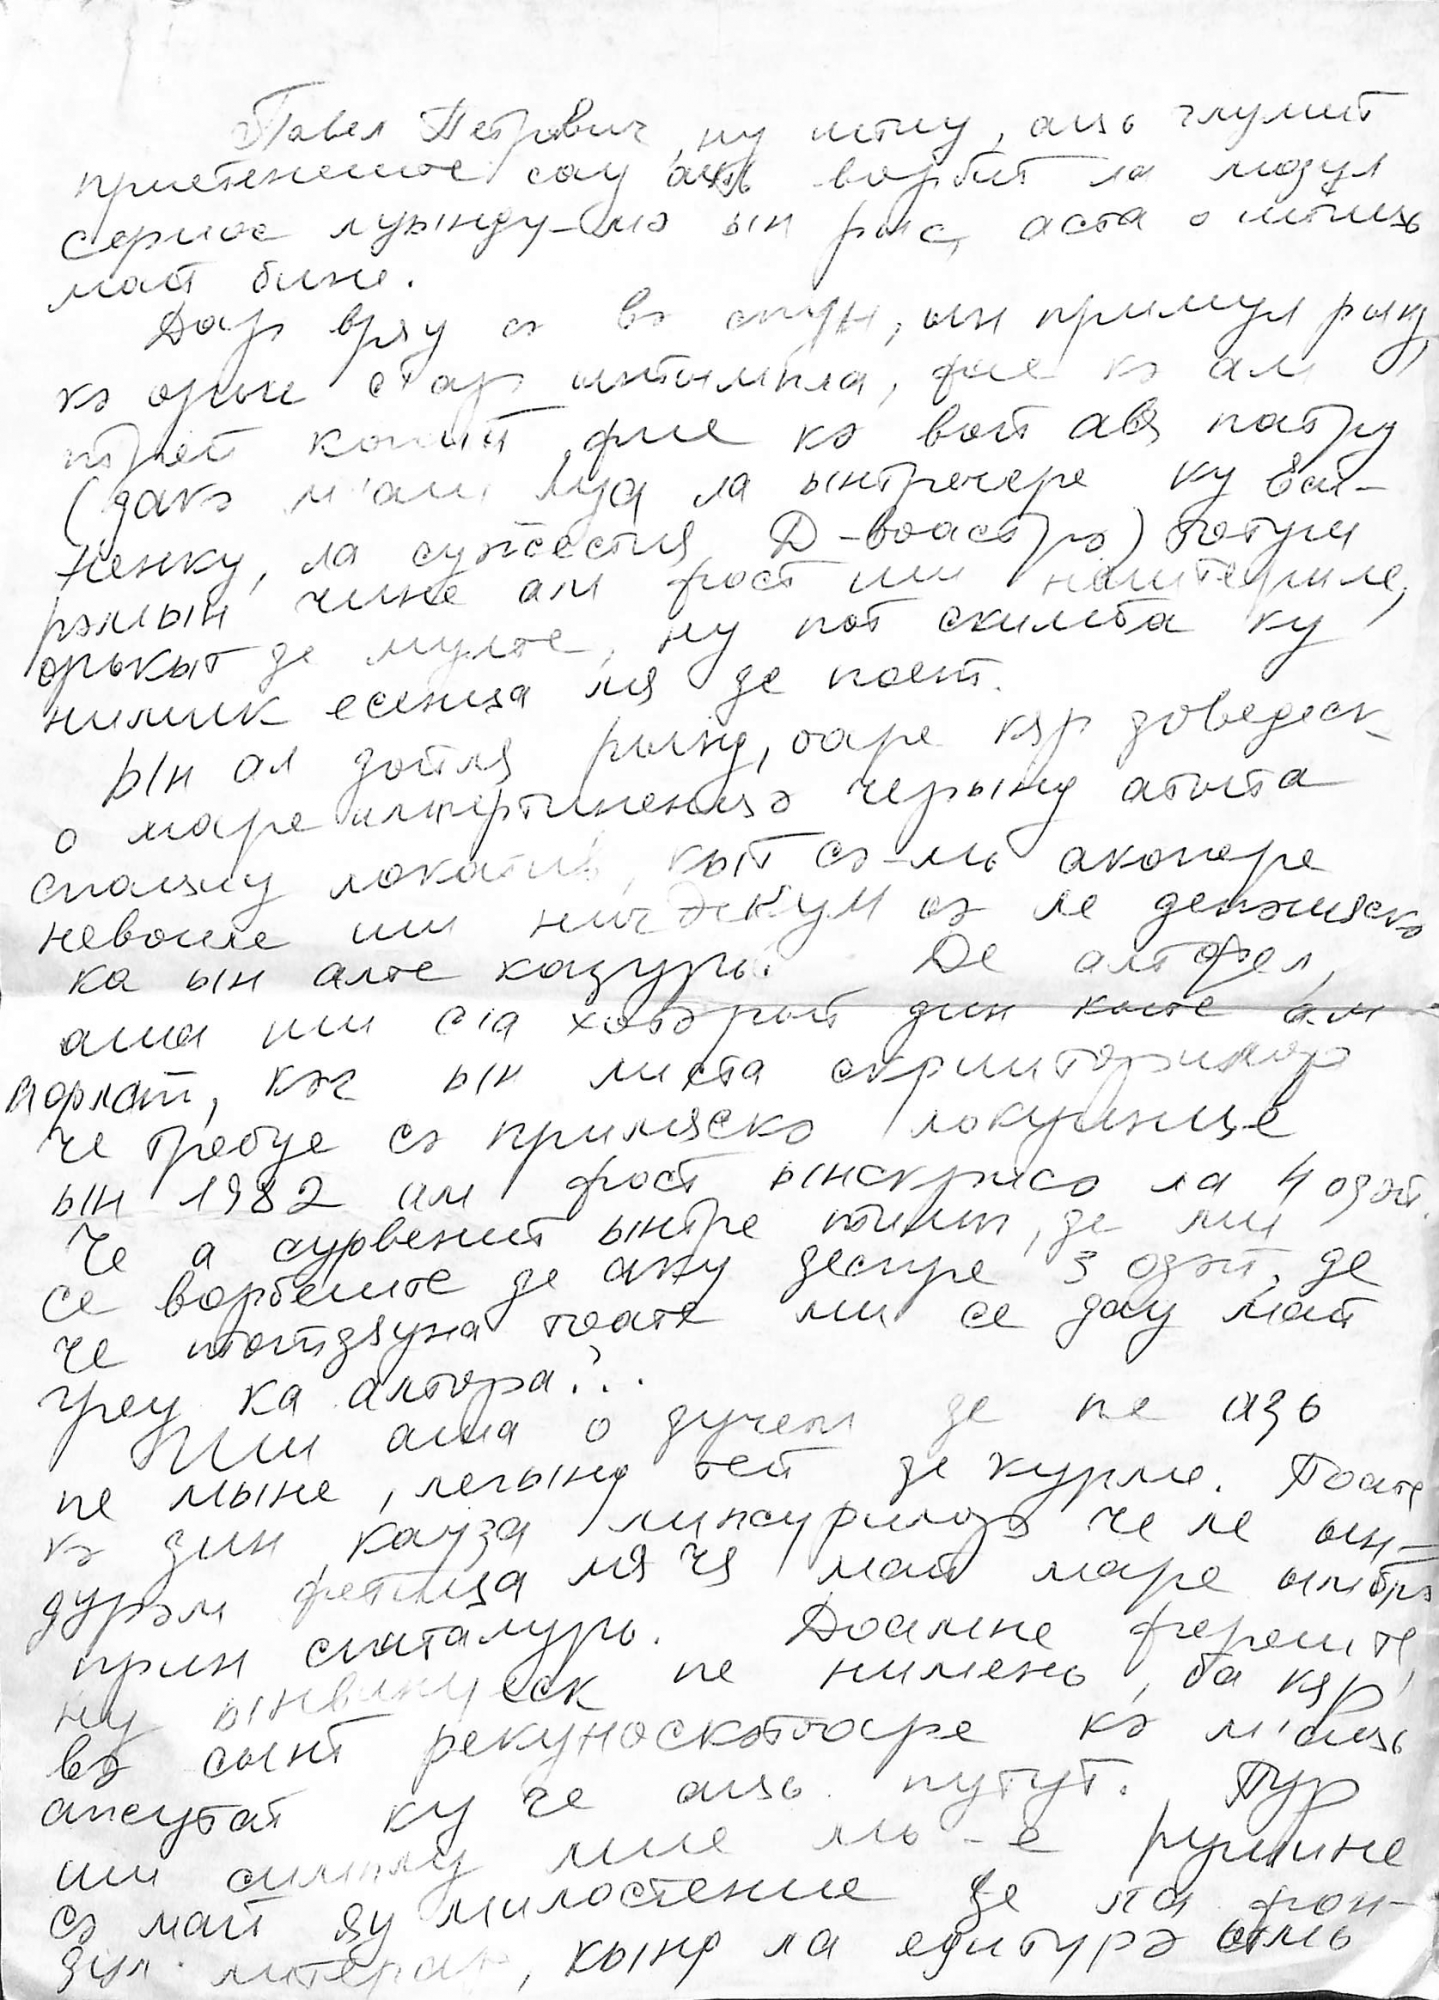 Павел Петрович, ну штиу, аць глумит
приетенеште сау аць ворбит ла модул
сериос луынду-мэ ын рыс, аста о штиць
май бине.
Дар вряу сэ вэ спун, ын примул рынд,
кэ орьи ст ар ынтымпла, фие кэ ам
трей копий, фие кэ вой авя патру
(дакэ м'аш луа ла ынтречере ку Вий-
ненку, ла суӂестия Д-воастрэ) тотуш
рэмын чине ам фост ши наштериле,
орькыт де мулте, ну пот скимба ку
нимик есенца мя де поет.
Ын ал дойля рынд, оаре кяр доведеск
о маре импертиненцэ черынд атыта
спациу локатив, кыт сэ-мь акопере
невоиле ши ничдекум сэ ле депэшяскэ
ка ын алте казурь? Де алтфел,
аша ши с'а хотэрыт дин ките ам
порнит, кэч ын листа скрииторилор
че требуе сэ примяскэ локуинце
ын 1982 ам фост ынскрисэ ла 4 одэй.
Че а сурвенит ынтре тимп, де ми
се ворбеште де аку деспре 3 одэй, де
че тотдяуна тоате ми се дау май
греу ка алтора?..
Ши аша о дучем де пе азь
пе мыне, легынд тей де курме. Поате
кэ дин кауза липсурилор че ле ын-
дурэм фетица мя чя май маре умблэ
прин спиталурь. Доамне фереште,
ну ынвинуеск пе нимень, ба кяр
вэ сынт рекуноскэтоаре кэ м'аць
ажутат ку че аць путут. Пур
ши симплу мие мь-е рушине
сэ май яу милостение де ла фон-
дул литерар, кынд ла едитурэ стмь